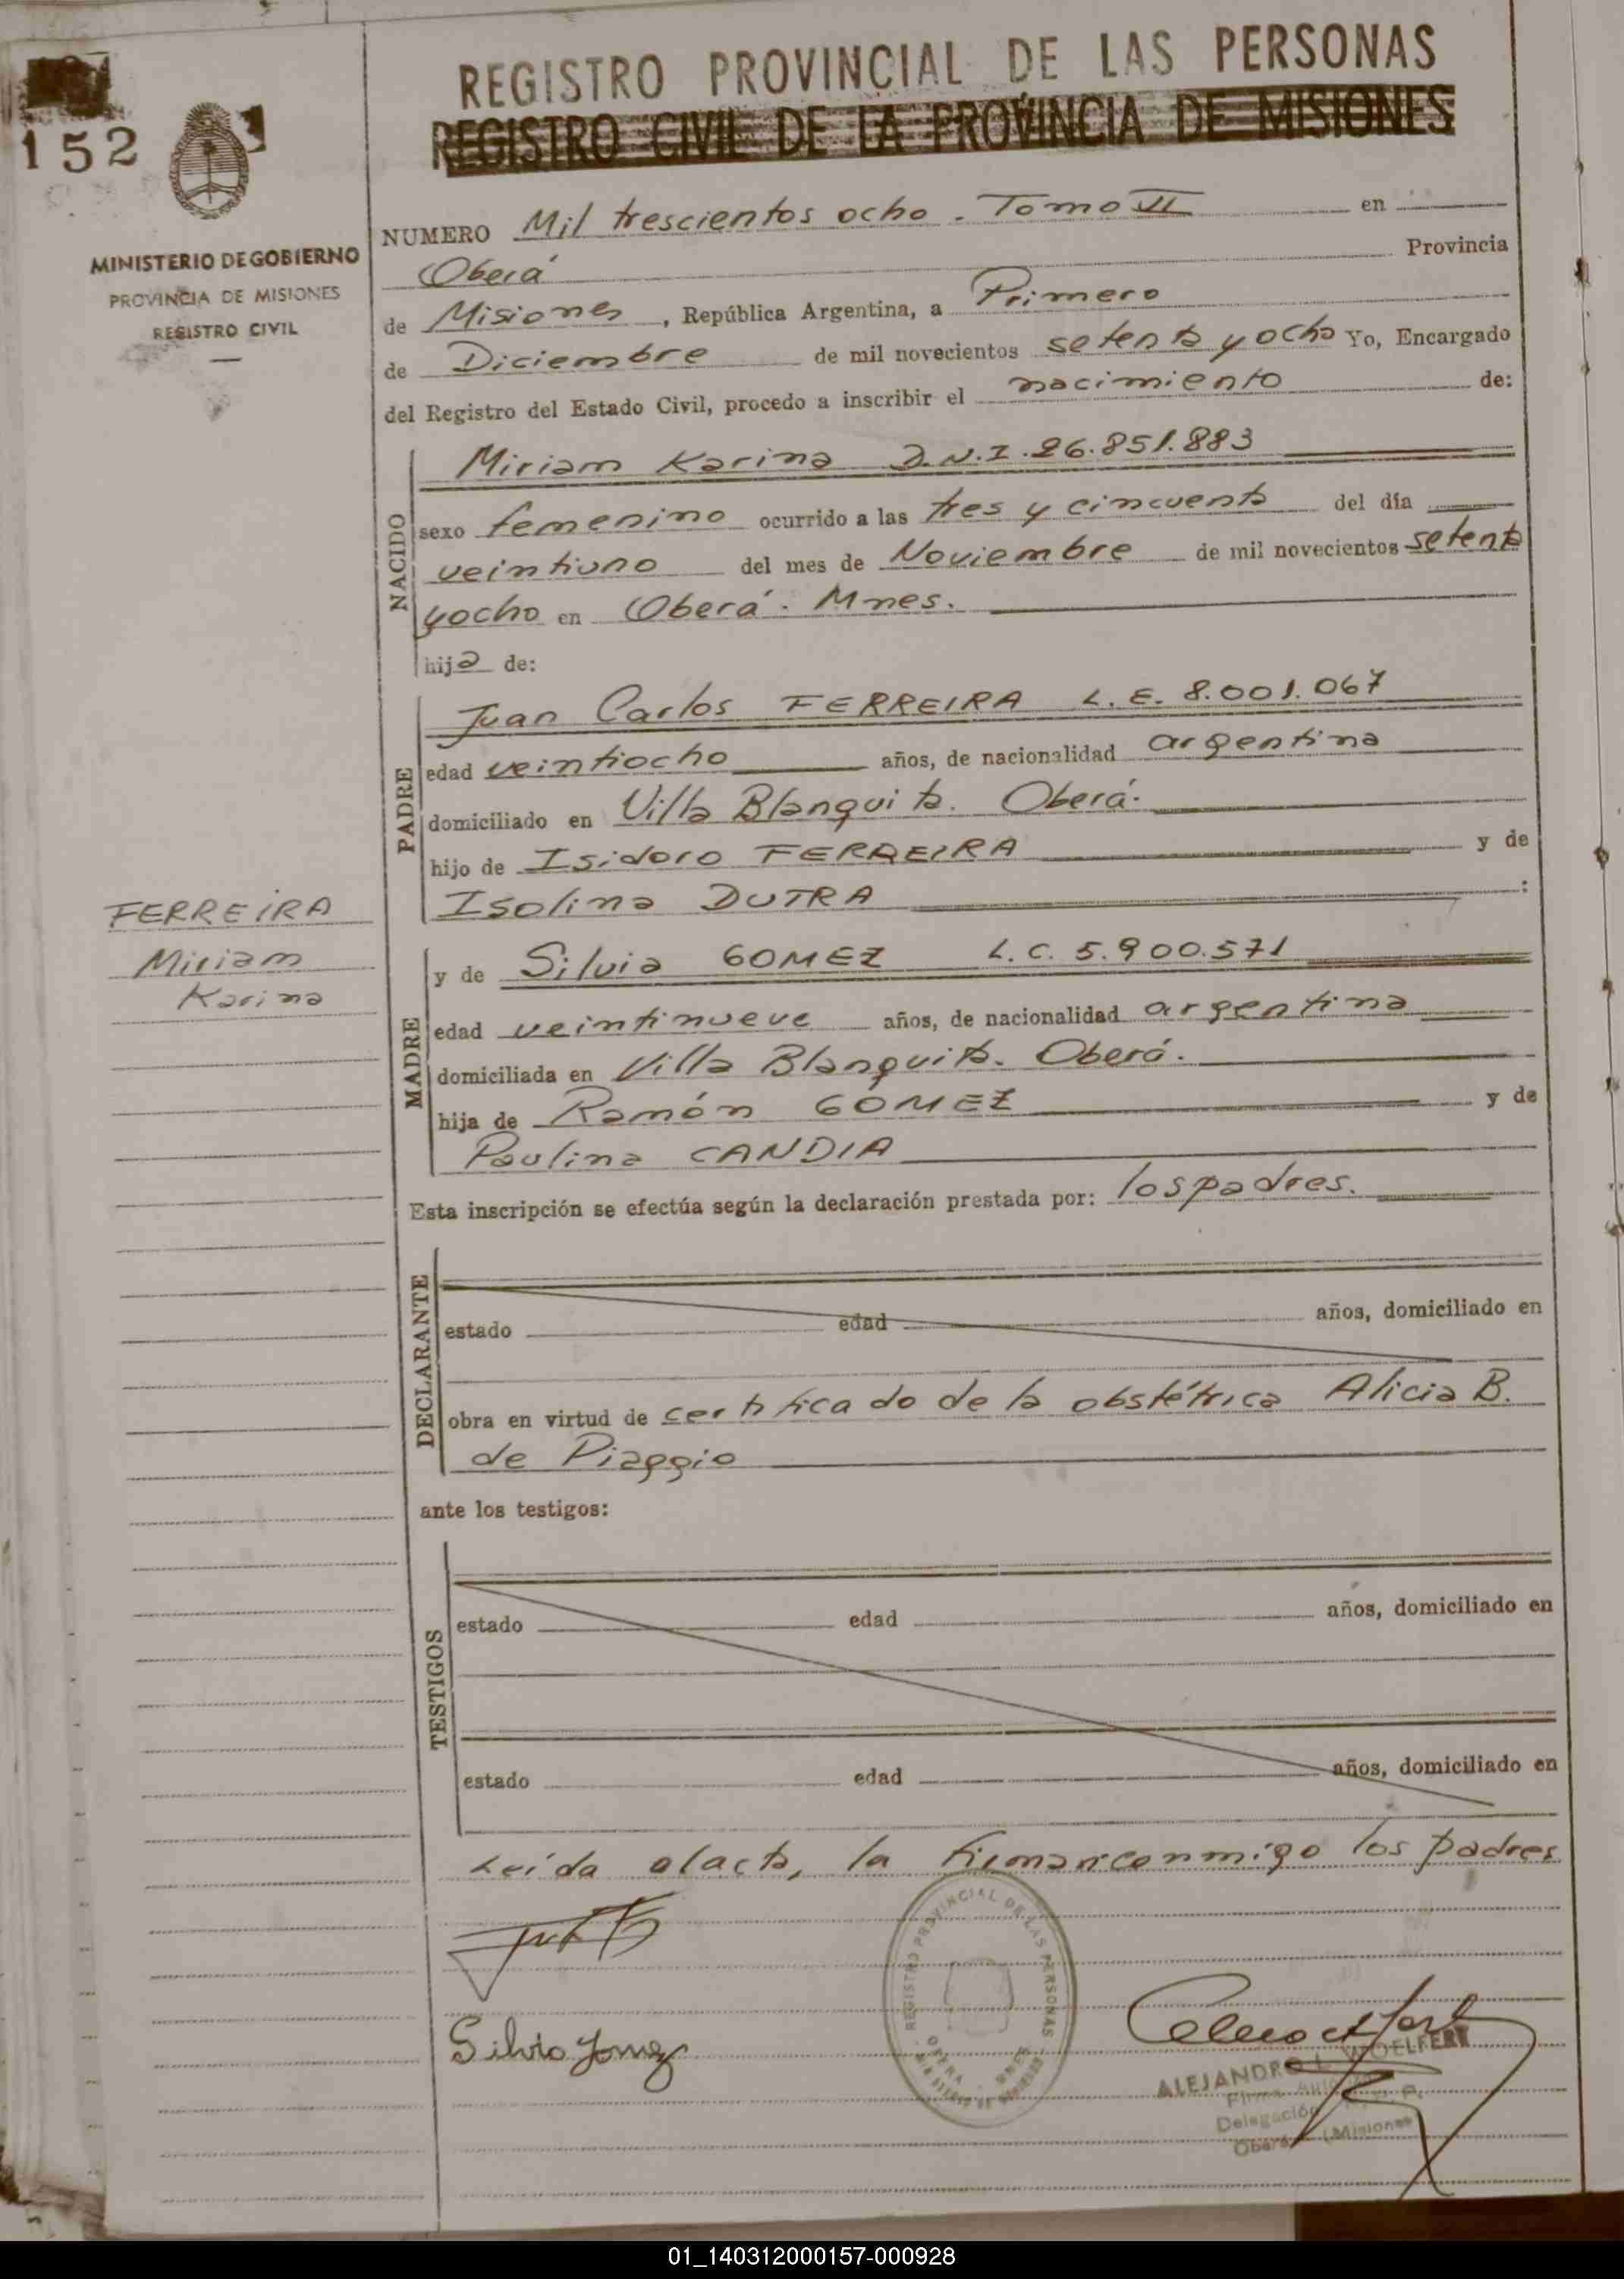 REGISTRO PROVINCIAL DE LAS PERSONAS
REGISTRO CIVIL DE LA PROVINCIA DE MISIONES
152
MINISTERIO DE GOBIERNO
PROVINCIA DE MISIONES
REGISTRO CIVIL
NUMERO Mil trescientos ocho. Tomo VII en
Oberá Provincia
de Misiones, República Argentina, a Primero
de Diciembre de mil novecientos setenta y ocho Yo, Encargado
del Registro del Estado Civil, procedo a inscribir el nacimiento de:
NACIDO
Miriam Karina D.N.I. 26.851.883
sexo femenino ocurrido a las tres y cincuenta del día
veintiuno del mes de Noviembre de mil novecientos setenta
yocho en Oberá. Mnes.
hija de:
PADRE
Juan Carlos FERREIRA L.E. 8.001.067
edad veintiocho años, de nacionalidad argentina
domiciliado en Villa Blanquita. Oberá.
hijo de Isidoro FERREIRA y de
Isolina DUTRA :
FERREIRA
Miriam
Karina
MADRE
y de Silvia GOMEZ L.C. 5.900.571
edad veintinueve años, de nacionalidad argentina
domiciliada en Villa Blanquita. Oberá.
hija de Ramón GOMEZ y de
Paulina CANDIA
Esta inscripción se efectúa según la declaración prestada por: los padres.
DECLARANTE
estado edad años, domiciliado en
obra en virtud de certificado de la obstétrica Alicia B.
de Piaggio
ante los testigos:
TESTIGOS
estado edad años, domiciliado en
estado edad años, domiciliado en
Leída el acta, la firman conmigo los padres
REGISTRO PROVINCIAL DE LAS PERSONAS
OBERA MNES
Silvia Gomez
ALEJANDRO L. WOELFERT
Firma
Delegación R. P.
Oberá (Misiones)
01_140312000157-000928